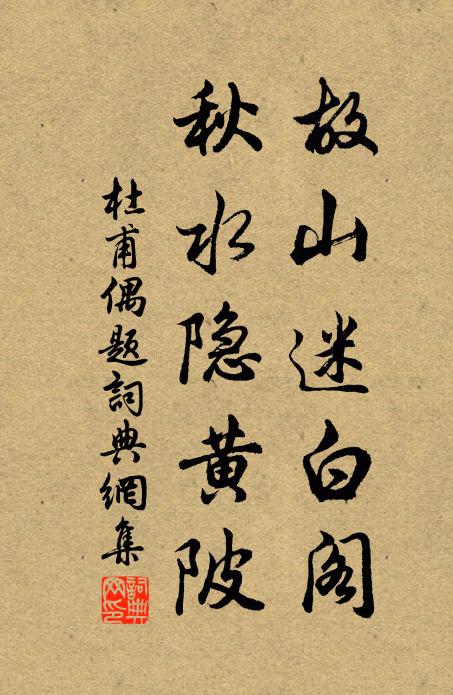 故山迷白阁
秋水隐黄陂
杜甫偶题詞典網集
詞典网印